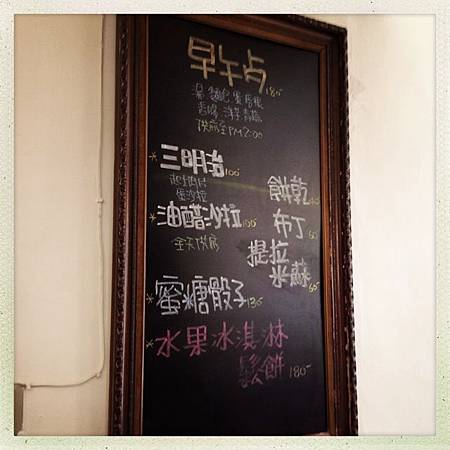 早午点 180
湯.麵包.蛋.馬鈴
香腸.洋芋.青蔬
供應至PM2:00
*三明治 100
起士肉片
蛋沙拉
*油醋沙拉 100
全天供應
餅乾
布丁
提拉
米蘇 65
*蜜糖骰子 135
*水果冰淇淋
鬆餅 180